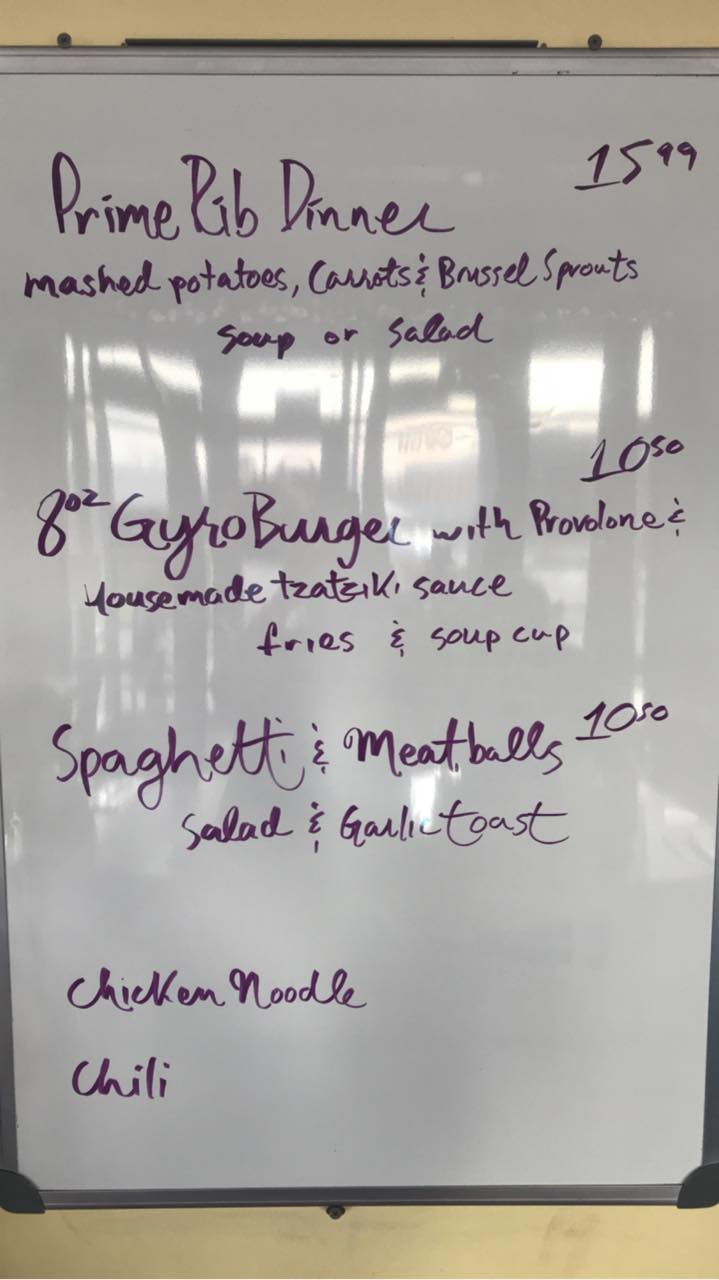 Prime Rib Dinner 15.99
mashed potatoes, Carrots & Brussel Sprouts
soup or salad
10.50
8oz Gyro Burger with Provolone &
Housemade tzatziki sauce
fries & soup cup
Spaghetti & Meatballs 10.50
Salad & Garlic toast
Chicken Noodle
Chili